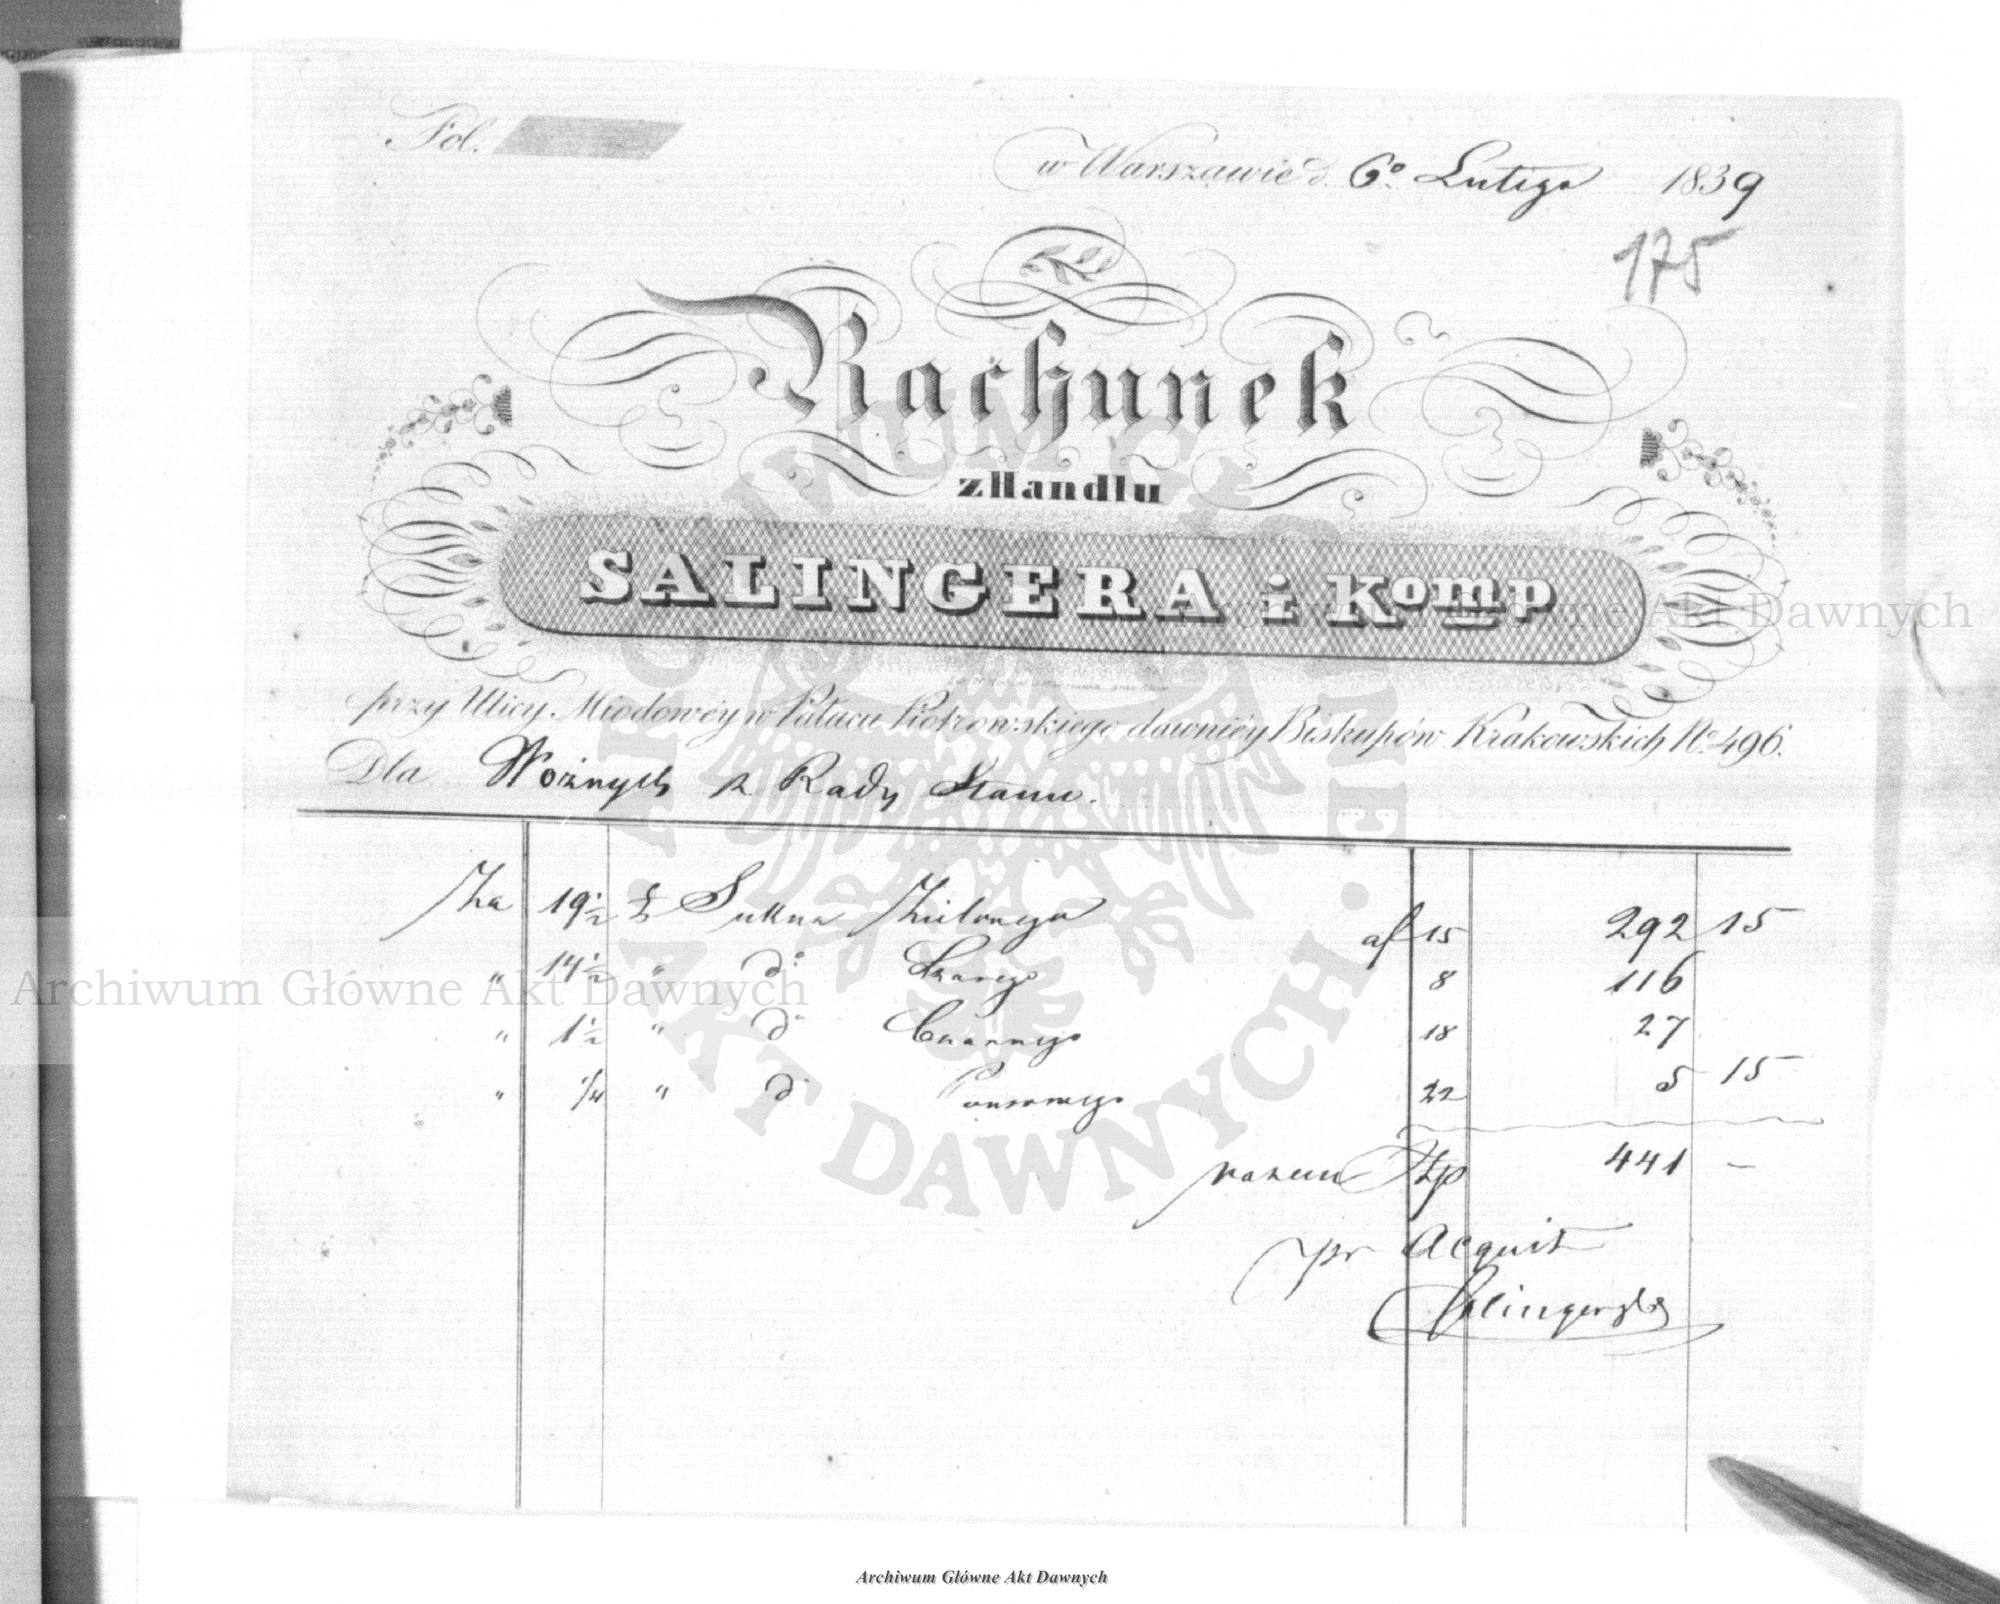 Fol.
w Warszawie d. 6º Lutego 1839
175
Rachunek
z Handlu
SALINGERA i Komp
przy Ulicy Miodowéy w Pałacu Piotrowskiego dawniéy Biskupów Krakowskich Nº 496.
Dla Woźnych z Rady Stanu.
Za 19½ Sukna Zielonego af 15 292 15
" 14½ " dº Szarego 8 116
" 1½ " dº Czarnego 18 27
" ¼ " dº Ponsowego 22 5 15
razem Złp 441 —
pr Acquit
Archiwum Główne Akt Dawnych
Archiwum Główne Akt Dawnych
Archiwum Główne Akt Dawnych